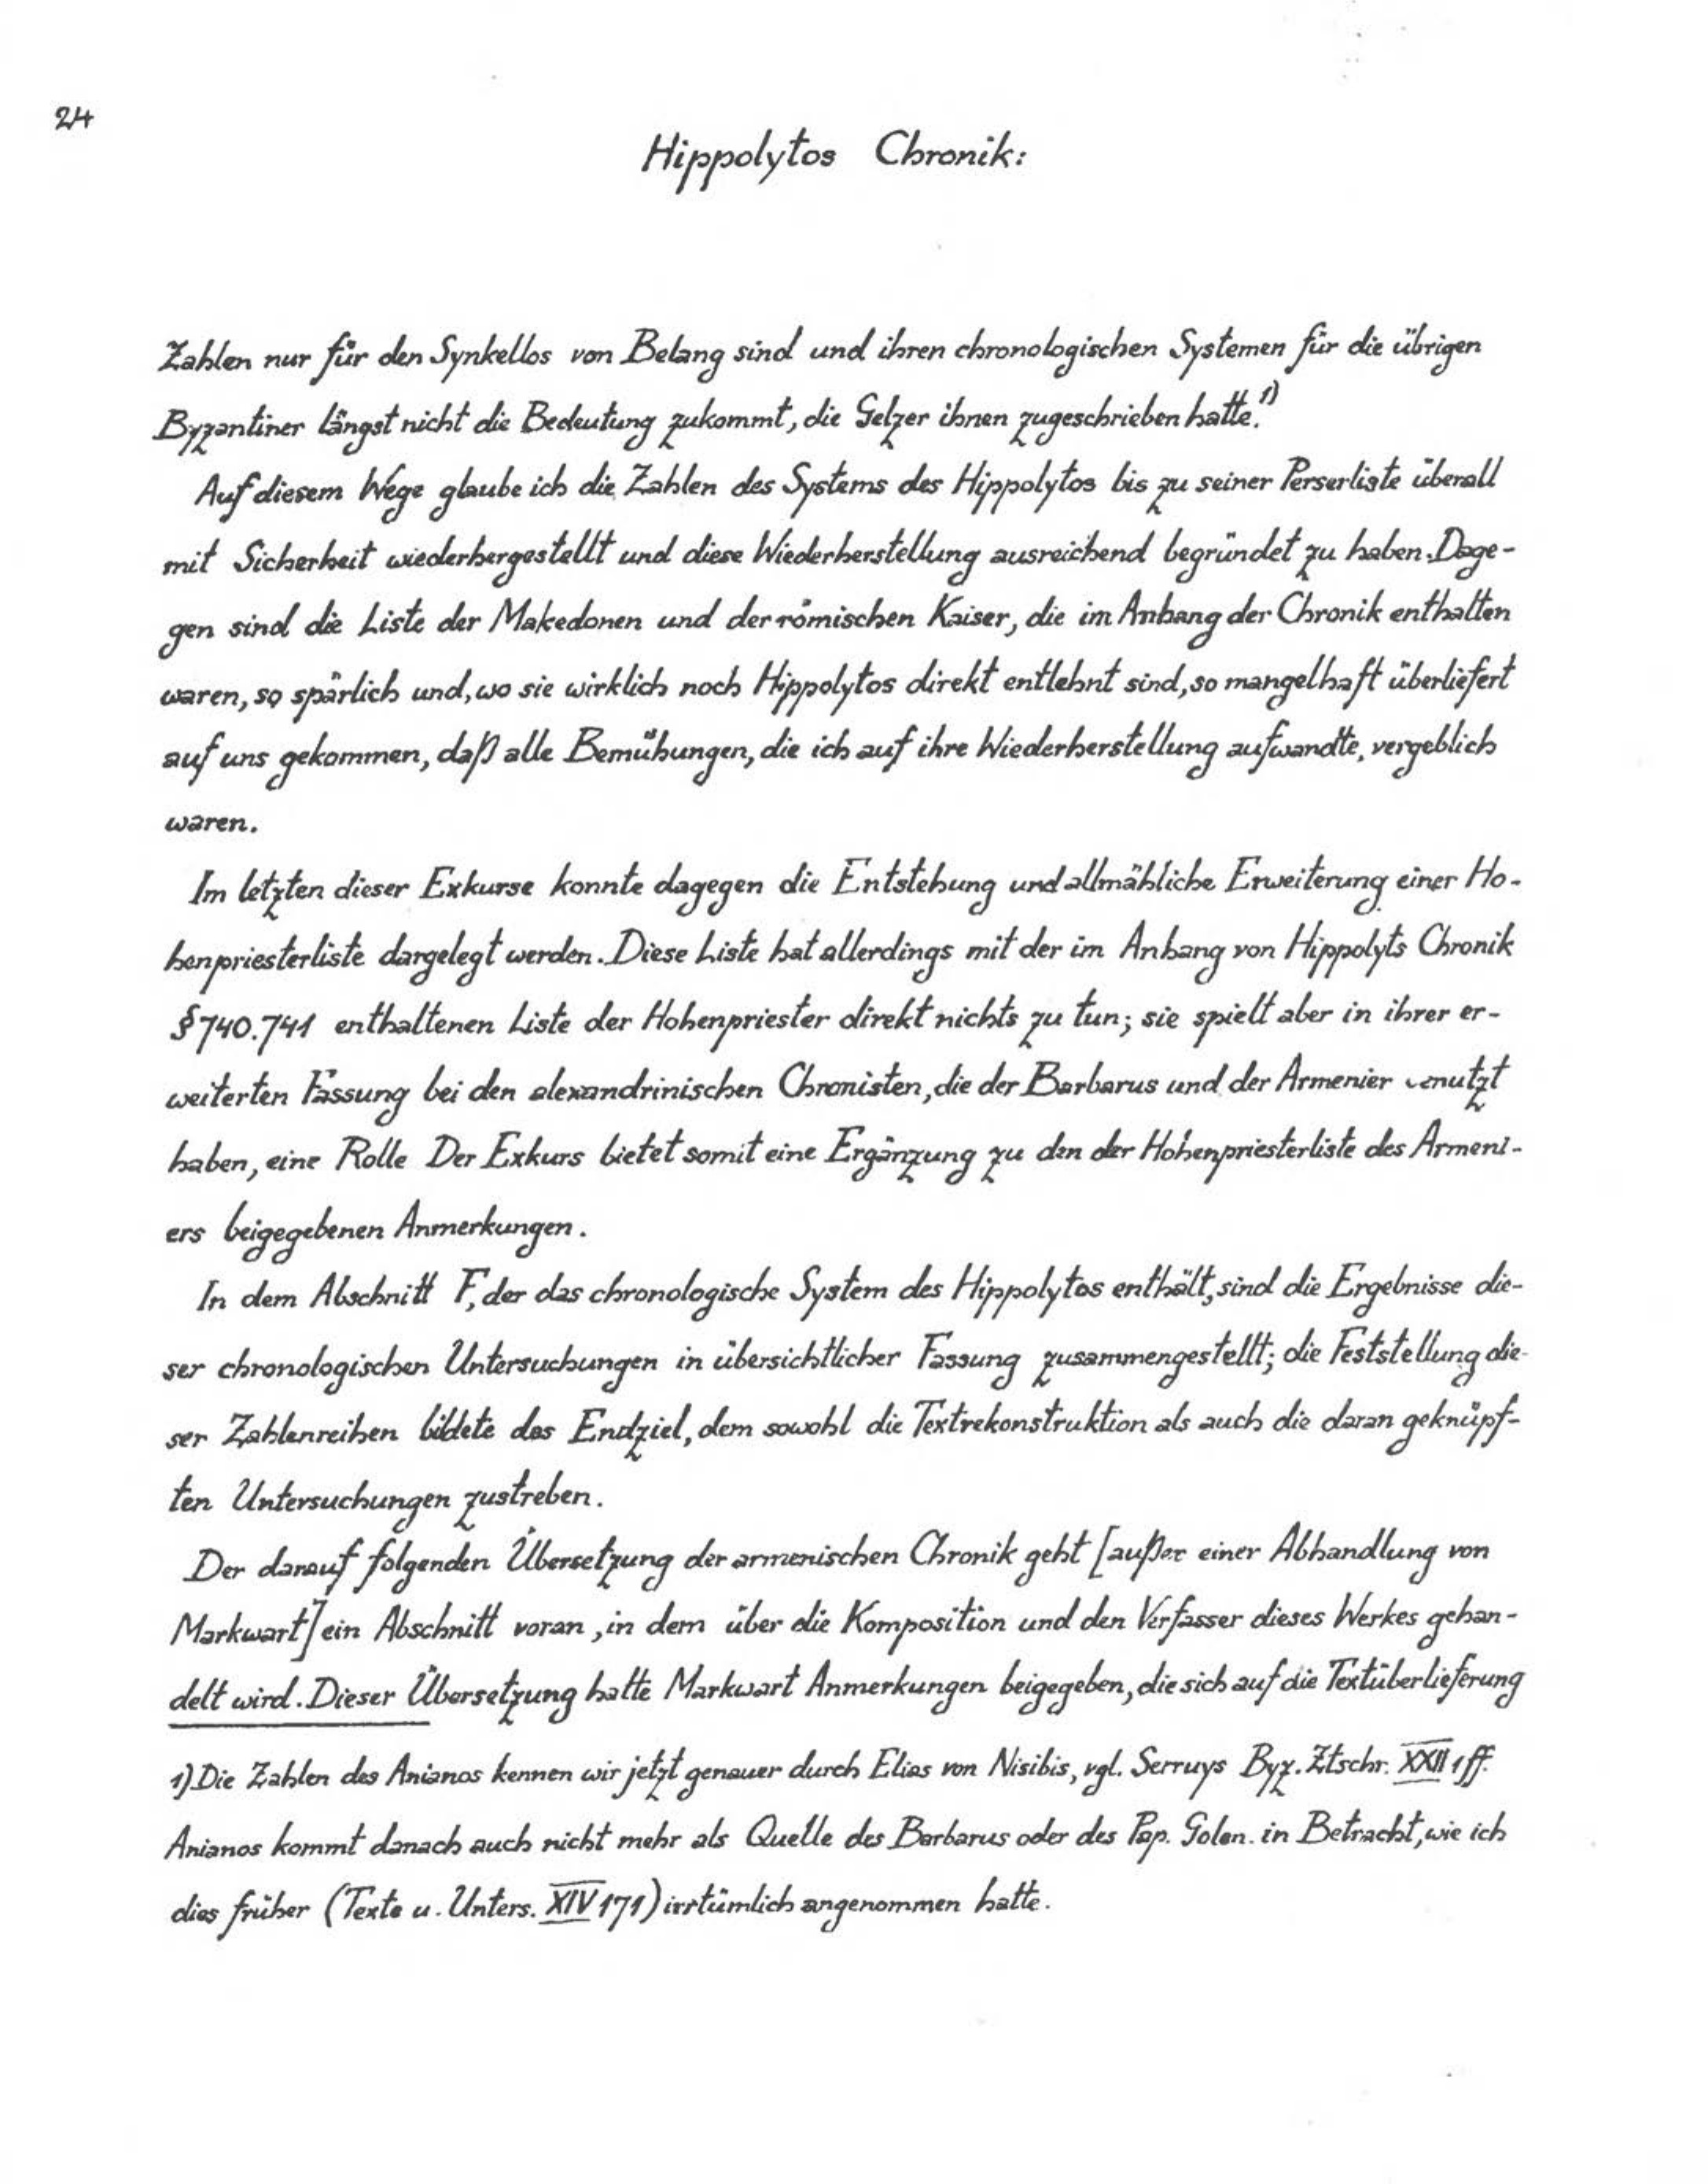 24
Hippolytos Chronik:
Zahlen nur für den Synkellos von Belang sind und ihren chronologischen Systemen für die übrigen
Byzantiner längst nicht die Bedeutung zukommt, die Gelzer ihnen zugeschrieben hatte.1)
Auf diesem Wege glaube ich die Zahlen des Systems des Hippolytos bis zu seiner Perserliste überall
mit Sicherheit wiederhergestellt und diese Wiederherstellung ausreichend begründet zu haben. Dage-
gen sind die Liste der Makedonen und der römischen Kaiser, die im Anhang der Chronik enthalten
waren, so spärlich und, wo sie wirklich noch Hippolytos direkt entlehnt sind, so mangelhaft überliefert
auf uns gekommen, daß alle Bemühungen, die ich auf ihre Wiederherstellung aufwandte, vergeblich
waren.
Im letzten dieser Exkurse konnte dagegen die Entstehung und allmähliche Erweiterung einer Ho-
henpriesterliste dargelegt werden. Diese Liste hat allerdings mit der im Anhang von Hippolyts Chronik
§ 740.741 enthaltenen Liste der Hohenpriester direkt nichts zu tun; sie spielt aber in ihrer er-
weiterten Fassung bei den alexandrinischen Chronisten, die der Barbarus und der Armenier enutzt
haben, eine Rolle Der Exkurs bietet somit eine Ergänzung zu den der Hohenpriesterliste des Armeni-
ers beigegebenen Anmerkungen.
In dem Abschnitt F, der das chronologische System des Hippolytos enthält, sind die Ergebnisse die-
ser chronologischen Untersuchungen in übersichtlicher Fassung zusammengestellt; die Feststellung die-
ser Zahlenreihen bildete das Endziel, dem sowohl die Textrekonstruktion als auch die daran geknüpf-
ten Untersuchungen zustreben.
Der darauf folgenden Übersetzung der armenischen Chronik geht [außer einer Abhandlung von
Markwart] ein Abschnitt voran, in dem über die Komposition und den Verfasser dieses Werkes gehan-
delt wird. Dieser Übersetzung hatte Markwart Anmerkungen beigegeben, die sich auf die Textüberlieferung
1) Die Zahlen des Anianos kennen wir jetzt genauer durch Elias von Nisibis, vgl. Serruys Byz. Ztschr. XXII 1ff.
Anianos kommt danach auch nicht mehr als Quelle des Barbarus oder des Pap. Golen. in Betracht, wie ich
dies früher (Texte u. Unters. XIV 171) irrtümlich angenommen hatte.